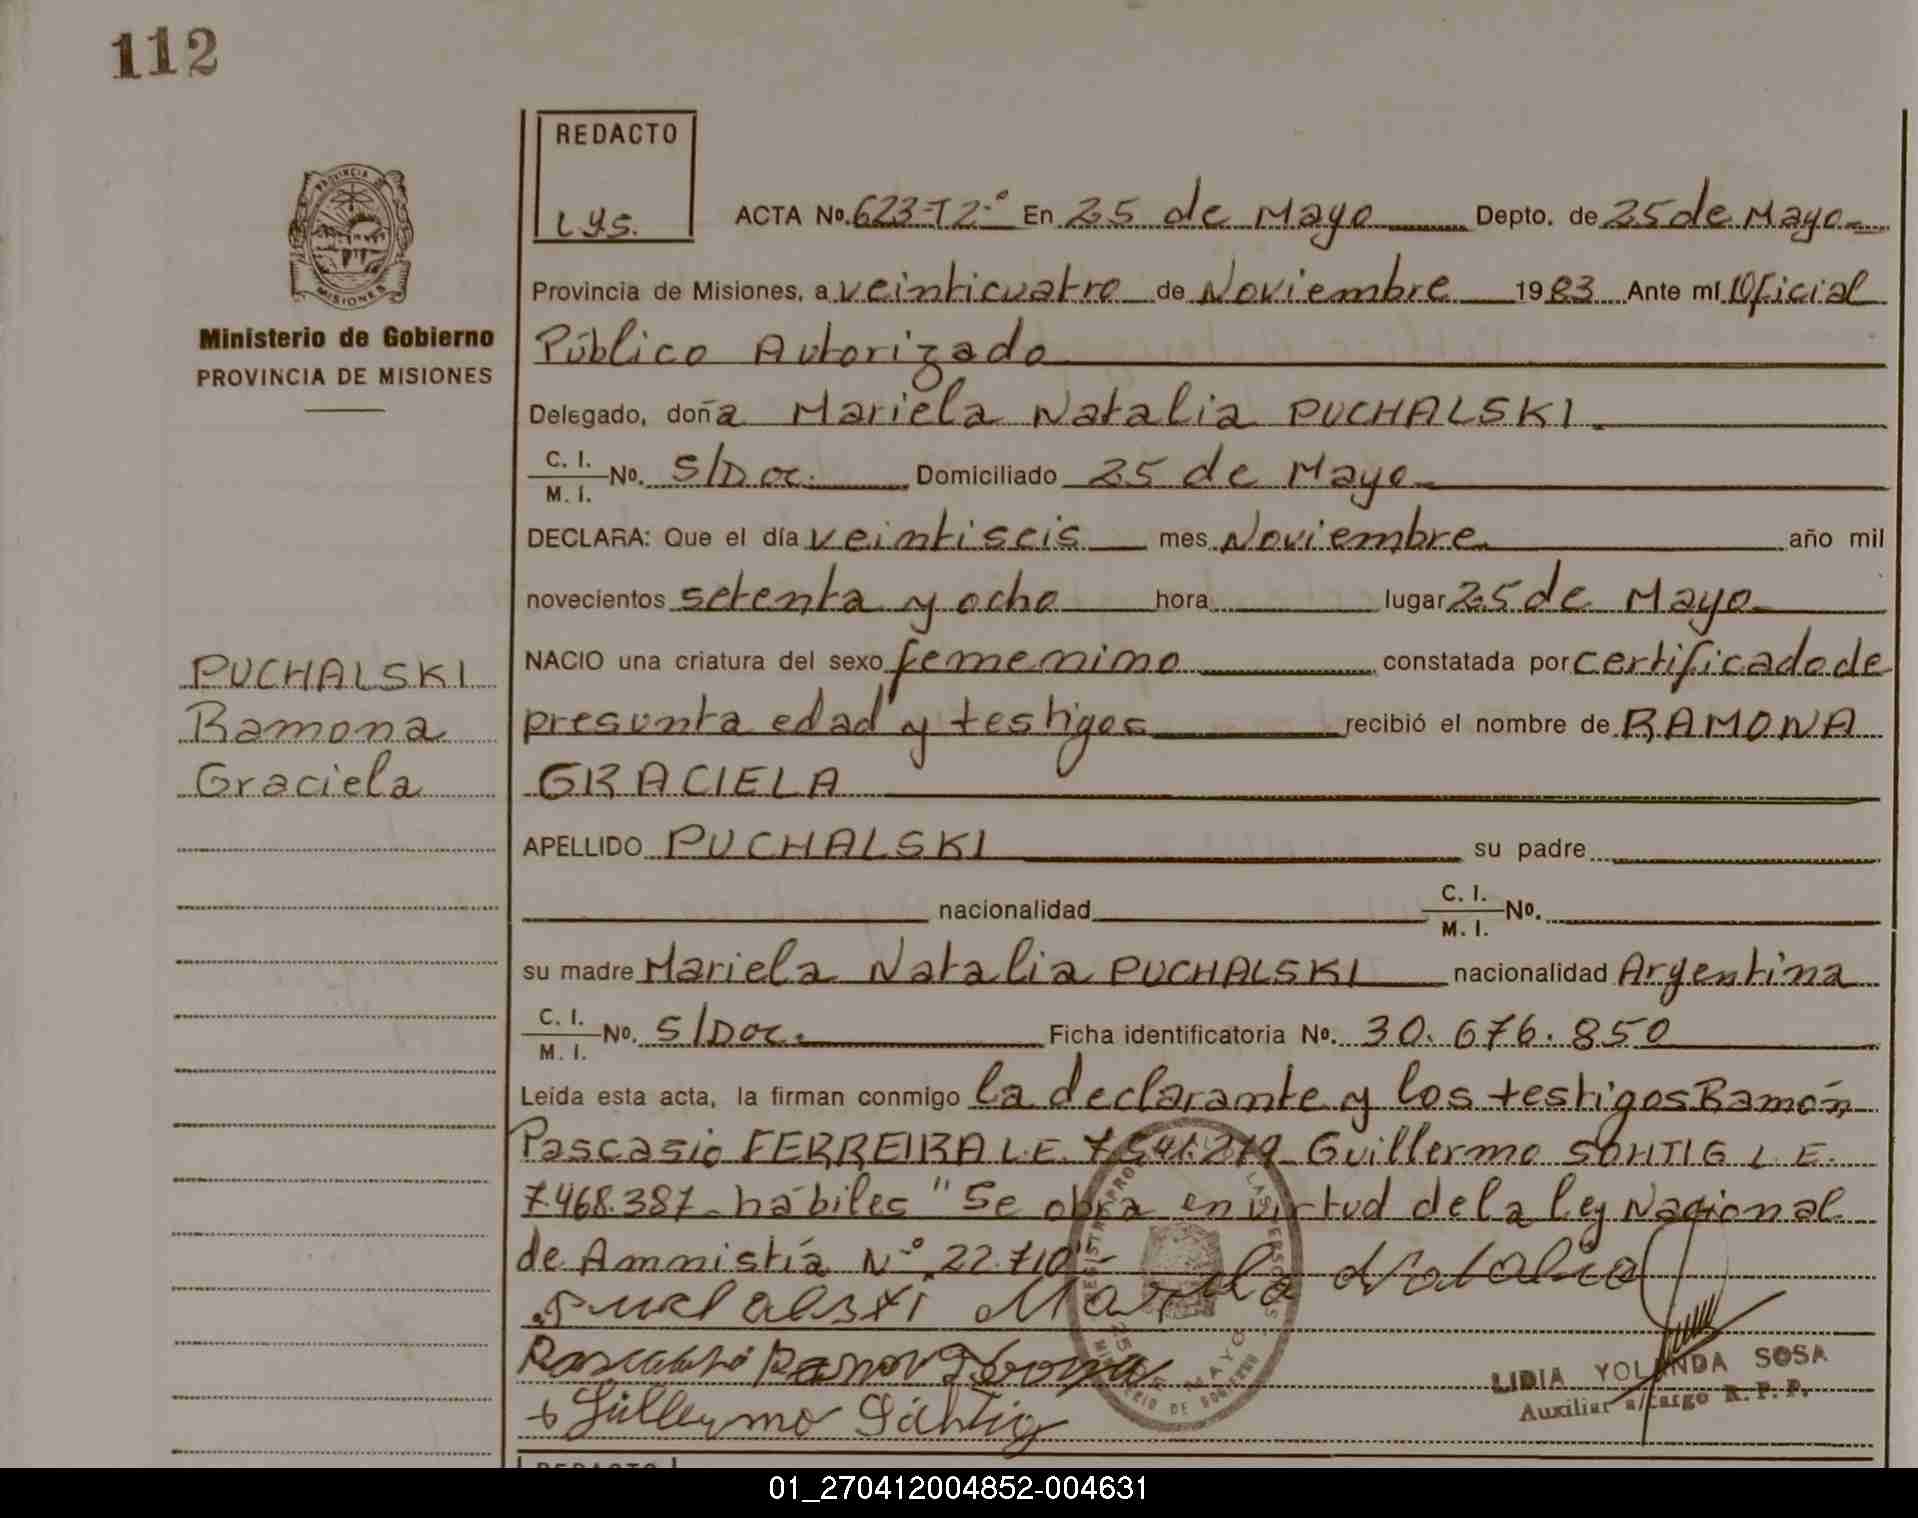 112
REDACTO
L.Y.S.
ACTA No. 623-T2-º En 25 de Mayo Depto. de 25 de Mayo
PROVINCIA DE
MISIONES
Provincia de Misiones, a veinticuatro de Noviembre 1983 Ante mí Oficial
Ministerio de Gobierno
Público Autorizado
PROVINCIA DE MISIONES
Delegado, doña Mariela Natalia PUCHALSKI.
C. I.
M. I. No. S/Doc. Domiciliado 25 de Mayo
DECLARA: Que el día veintiseis mes Noviembre año mil
novecientos setenta y ocho hora lugar 25 de Mayo
PUCHALSKI
NACIO una criatura del sexo femenino constatada por certificado de
Ramona
presunta edad y testigos recibió el nombre de RAMONA
Graciela
GRACIELA
APELLIDO PUCHALSKI su padre
nacionalidad C. I.
M. I. No.
su madre Mariela Natalia PUCHALSKI nacionalidad Argentina
C. I.
M. I. No. S/Doc. Ficha identificatoria No. 30.676.850
Leída esta acta, la firman conmigo la declarante y los testigos Ramón
Pascasio FERREIRA L.E. 7.541.219 Guillermo SOHTIG L.E.
7.468.387- hábiles " Se obra en virtud de la ley Nacional
de Amnistía N-º 22.710"-
Mariela Natalia
LIDIA YOLANDA SOSA
Auxiliar a/cargo R. P. P.
25 DE MAYO
MINISTERIO DE GOBIERNO
REDACTO
01_270412004852-004631